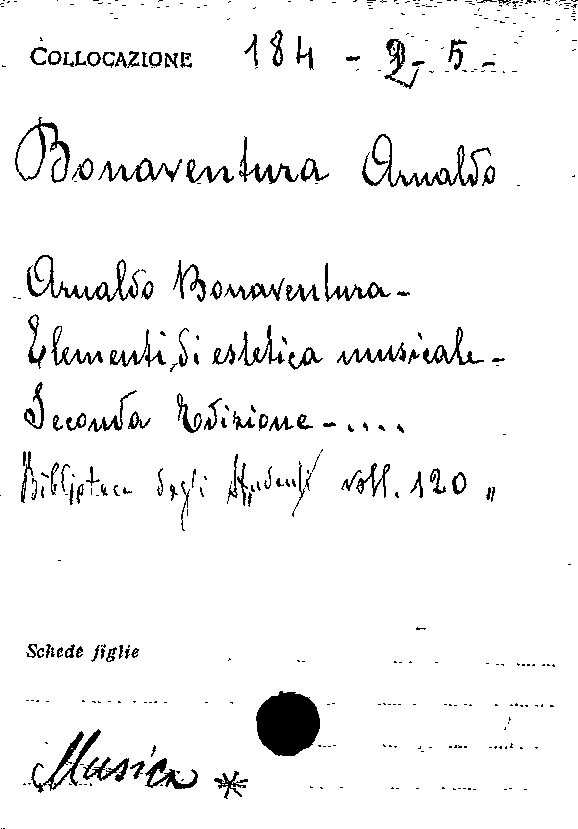 COLLOCAZIONE 184 - 2 - 5 -
Bonaventura Arnaldo
Arnaldo Bonaventura -
Elementi di estetica musicale -
Seconda Edizione - ....
Biblioteca degli Studenti voll. 120 "
Schede figlie
Musica *